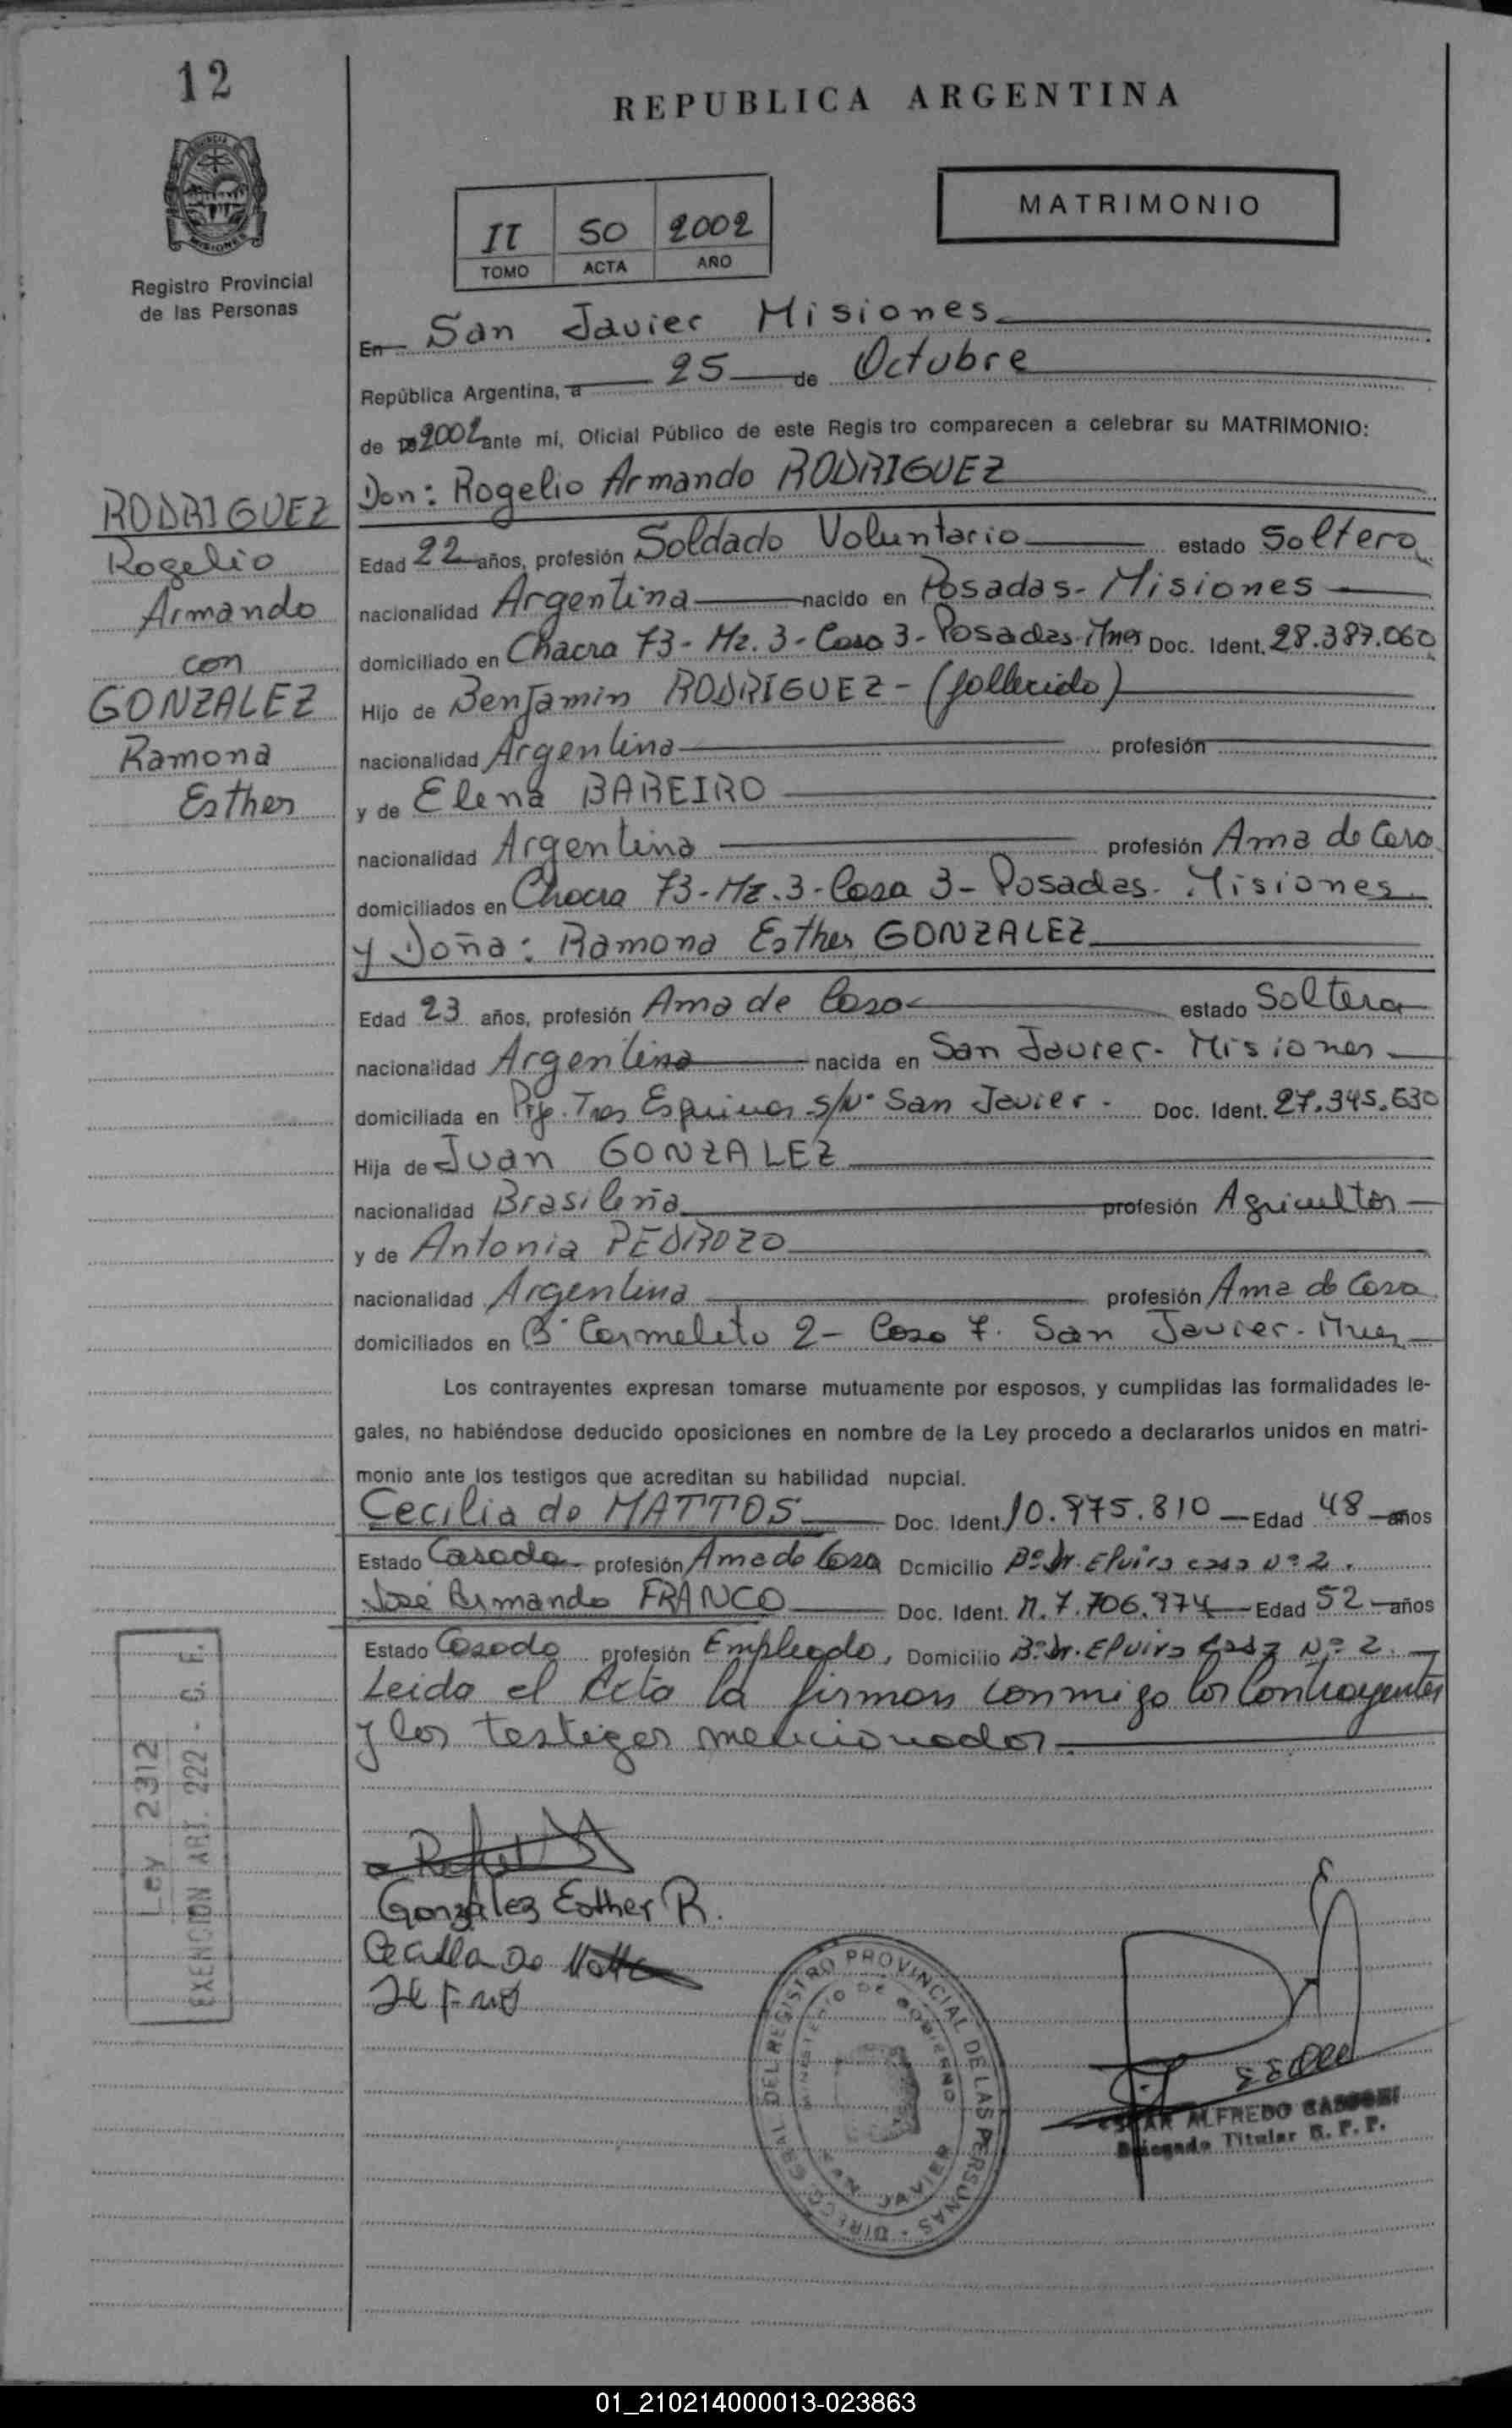 12
REPUBLICA ARGENTINA
MATRIMONIO
II 50 2002
TOMO ACTA AÑO
Registro Provincial
de las Personas
En San Javier Misiones
República Argentina, a 25 de Octubre
de 2002 ante mí, Oficial Público de este Regis tro comparecen a celebrar su MATRIMONIO:
Don: Rogelio Armando RODRIGUEZ
RODRIGUEZ
Rogelio
Armando
con
GONZALEZ
Ramona
Esther
Edad 22 años, profesión Soldado Voluntario estado Soltero
nacionalidad Argentina nacido en Posadas - Misiones
domiciliado en Chacra 73 - Mz. 3 - Casa 3 - Posadas - Mnes Doc. Ident. 28.387.060
Hijo de Benjamin RODRIGUEZ - (fallecido)
nacionalidad Argentina profesión
y de Elena BAREIRO
nacionalidad Argentina profesión Ama de Casa
domiciliados en Chacra 73 - Mz. 3 - Casa 3 - Posadas - Misiones
y Doña: Ramona Esther GONZALEZ
Edad 23 años, profesión Ama de Casa estado Soltera
nacionalidad Argentina nacida en San Javier - Misiones
domiciliada en Pje. Tres Esquinas s/Nº San Javier - Doc. Ident. 27.345.630
Hija de Juan GONZALEZ
nacionalidad Brasileña profesión Agricultor
y de Antonia PEDROZO
nacionalidad Argentina profesión Ama de Casa
domiciliados en Bº Carmelito 2 - Casa 7. San Javier - Mnes
Los contrayentes expresan tomarse mutuamente por esposos, y cumplidas las formalidades le-
gales, no habiéndose deducido oposiciones en nombre de la Ley procedo a declararlos unidos en matri-
monio ante los testigos que acreditan su habilidad nupcial.
Cecilia de MATTOS Doc. Ident. 10.975.810 Edad 48 años
Estado Casada profesión Ama de Casa Domicilio Bº Dr. Elvira casa Nº 2.
José Armando FRANCO Doc. Ident. M. 7.706.974 Edad 52 años
Estado Casado profesión Empleado, Domicilio Bº Dr. Elvira Casa Nº 2.
Leida el Acta la firman conmigo los Contrayentes
y los testigos mencionados
Ley 2312
EXENCION ART. 222 - C. F.
Gonzalez Esther R.
Cecilia De Matto
DIRECC. GRAL DEL REGISTRO PROVINCIAL DE LAS PERSONAS
MINISTERIO DE GOBIERNO
SAN JAVIER
ALFREDO
Delegado Titular R. P. P.
01_210214000013-023863